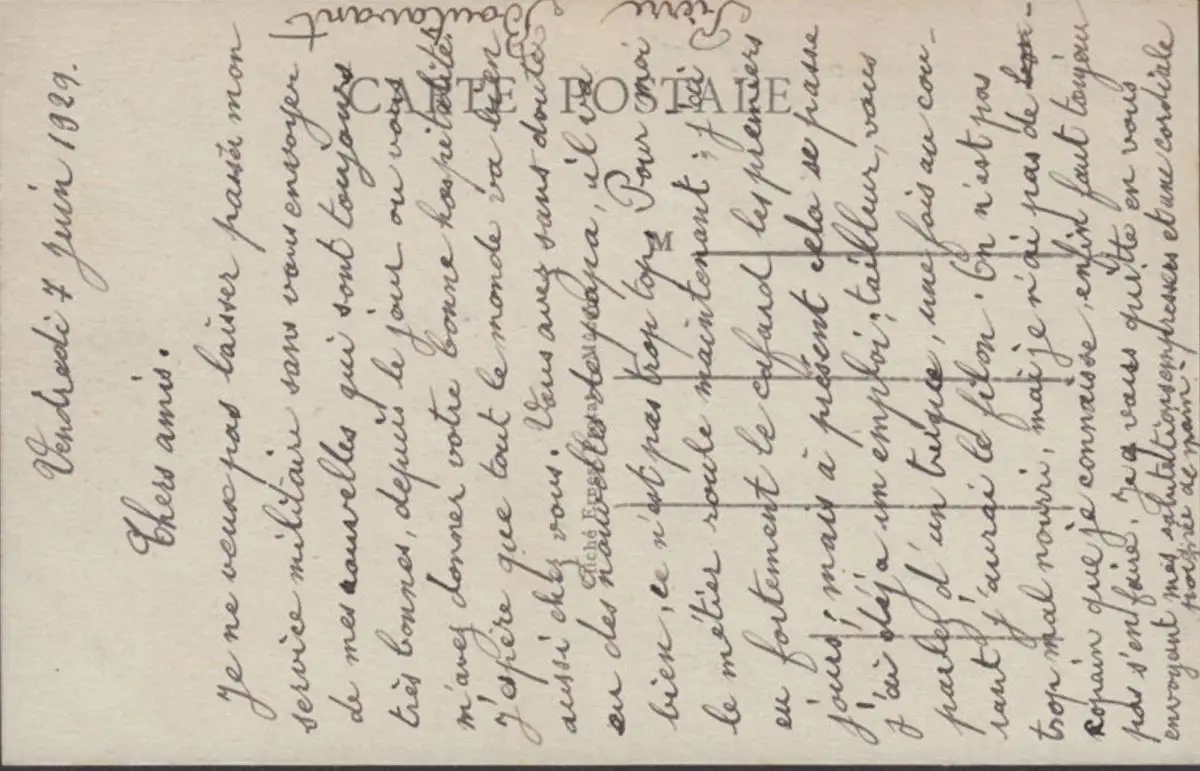 Vendredi 7 Juin 1929.
Chers amis.
Je ne veux pas laisser passer mon
service militaire sans vous envoyer
de mes nouvelles qui sont toujours
très bonnes, depuis le jour ou vous
m'avez donner votre bonne hospitalité.
J'espère que tout le monde va bien
aussi chez vous. Vous avez sans doute
eu des nouvelles de papa, il va
bien, ce n'est pas trop top. Pour moi
le métier roule maintenant; j'ai
eu fortement le cafard les premiers
jours, mais à présent cela se passe
J'ai déjà un emploi, tailleur, vous
parlez d'un truque, une fois au cou-
rant j'aurai le filon. On n'est pas
trop mal nourri, mais je n'ai pas de
copain que je connaisse, enfin faut toujour
pas s'en faire. Je vais vous quitté en vous
envoyant mes salutations empressées et une cordiale
poignée de main.
Pierre
Boutavant
CARTE POSTALE
M
Cliché